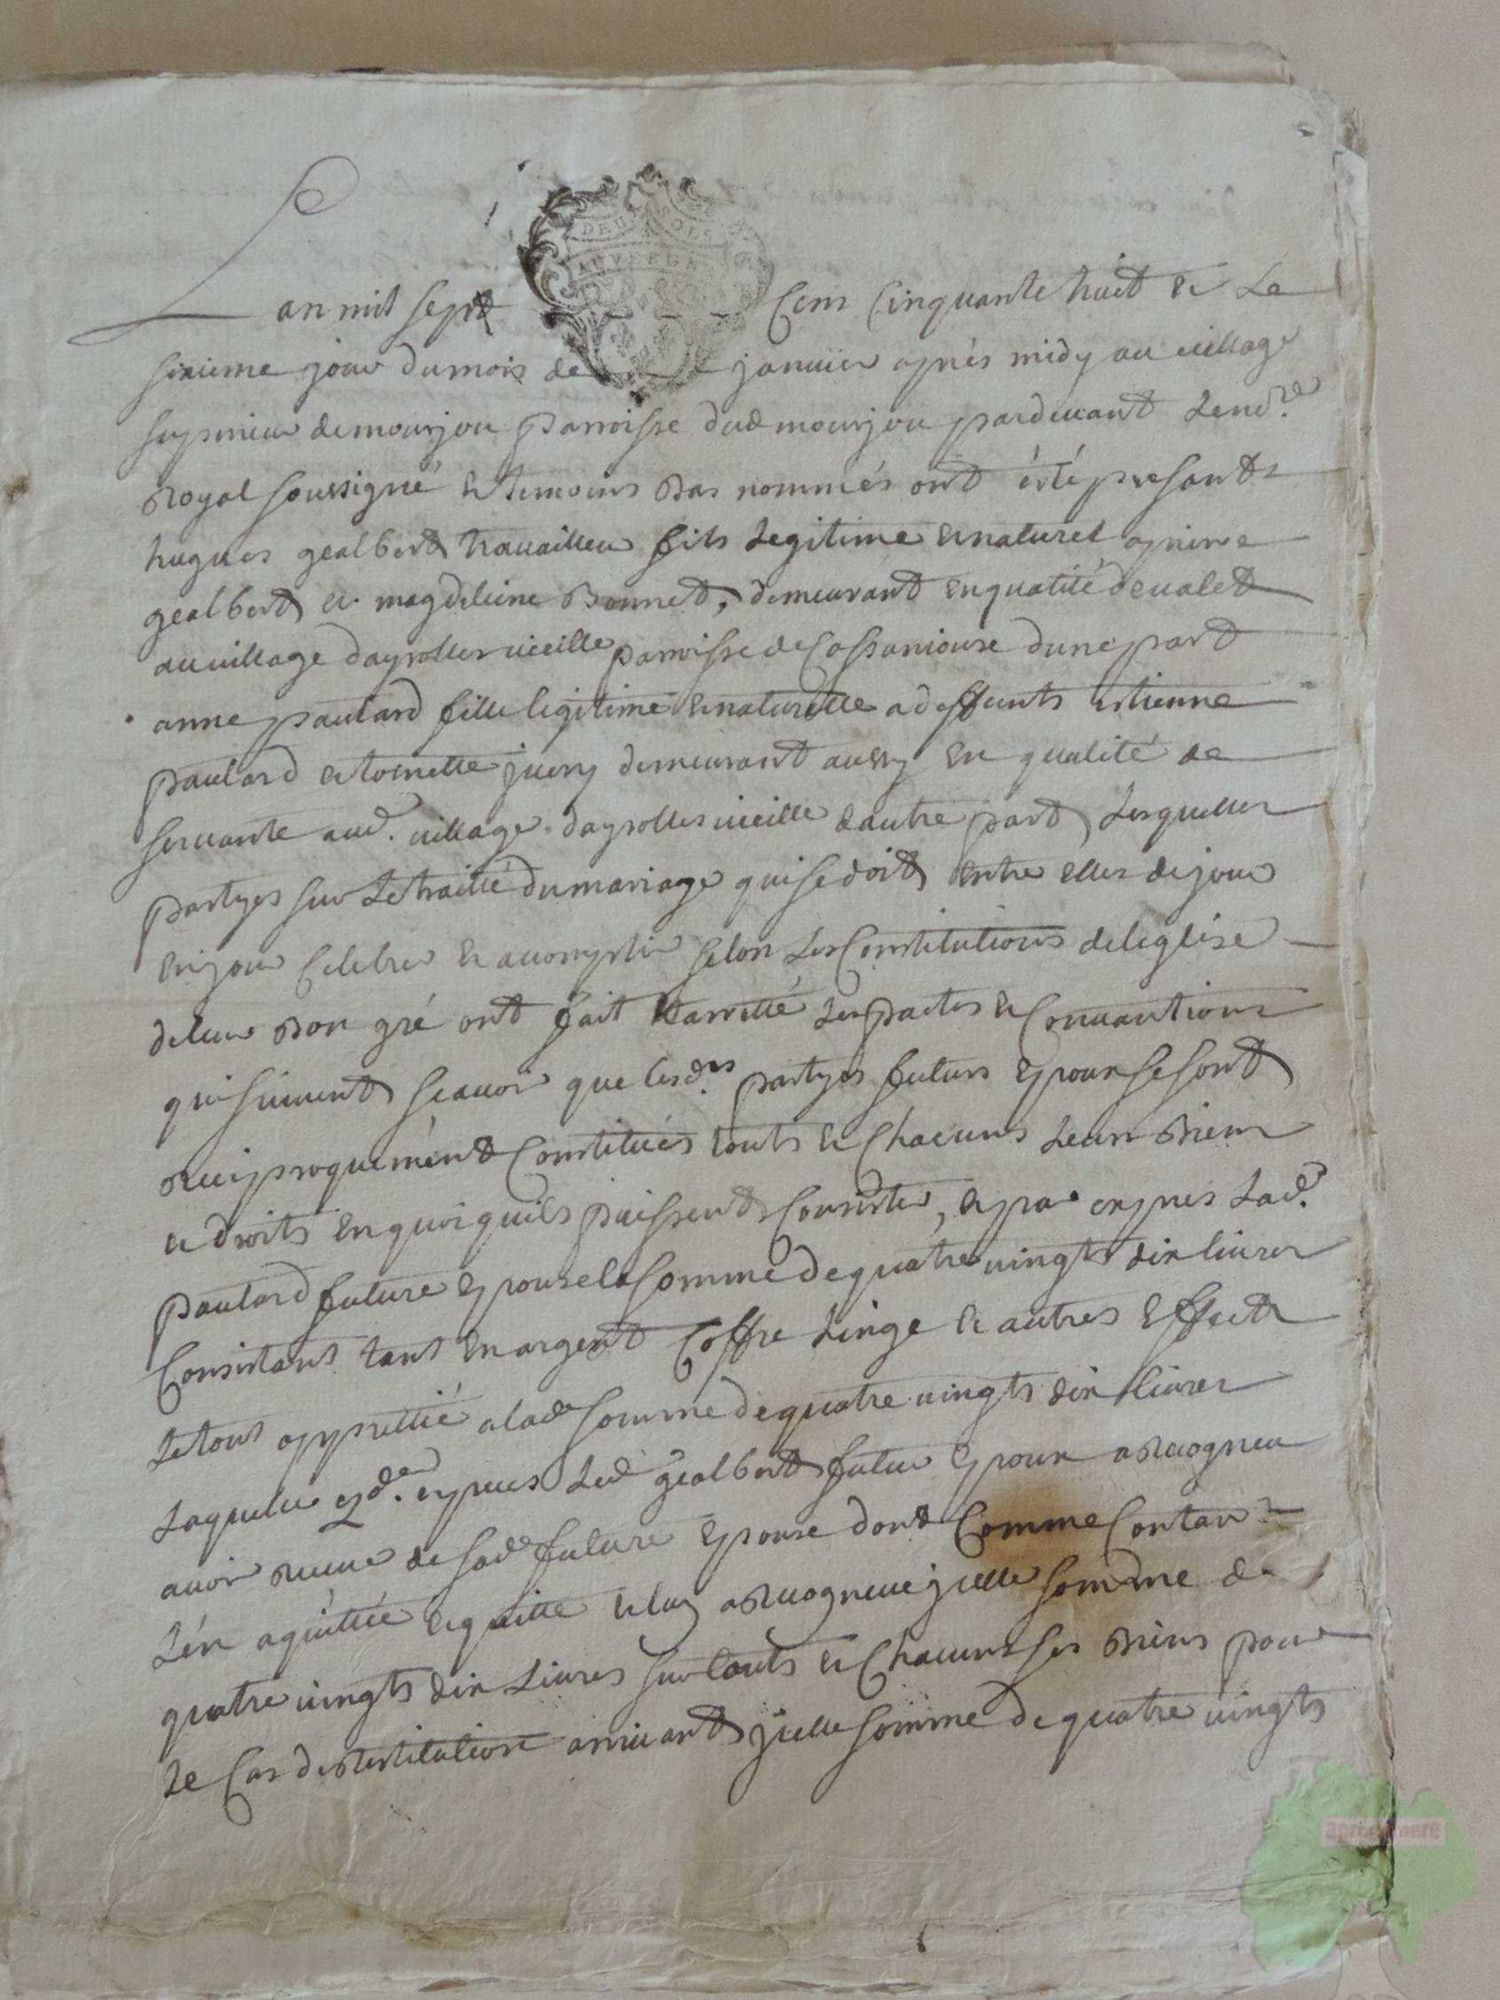 DEUX SOLS
AUVERGNE
L'an mil sept Cens Cinquante huit & Le
sixieme jour du mois de janvier aprés midy au village
superieur de mourjou parroisse dud mourjou pardevant Le no.re
Royal soussigné & temoins Bas nommés ont été présants
hugues gealbert travailleur fils Legitime & naturel a pierre
gealbert & magdeleine Bonnet, demeurant en qualité de valet
au village dayrolles vieille parroisse de Cassaniouse dune part
anne paulard fille legitime & naturelle a deffunts estienne
paulard & toinette juery demeurant aussy en qualité de
servante aud. village dayrolles vieille dautre part Lesquelles
partyes sur Le traitté du mariage qui se doit entre elles de jour
en jour Celebrer & accomplir selon Les Constitutions de leglise
de leur Bon gré ont fait & arretté Les pactes & Convantions
qui suivent scavoir que lesd.es partyes futurs epoux se sont
Reciproquement Constitués touts & Chacuns Leurs Biens
& droits en quoi quils puissent Consister, & par exprés Lad.e
paulard future epouse la somme de quatre vingts dix livres
Consistant tant en argent Coffre Linge & autres Effects
Le tout apprettié a lad.e somme de quatre vingts dix livres
Laquelle exprés Led gealbert futur epoux a Recogneu
avoir Receue de sad.e future epouse dont Comme Contant
Len a quittée & quitte & luy a Recogneue jcelle somme de
quatre vingts dix Livres sur touts & Chacuns ses Biens pour
Le Cas de Restitution arrivant jcelle somme de quatre vingts